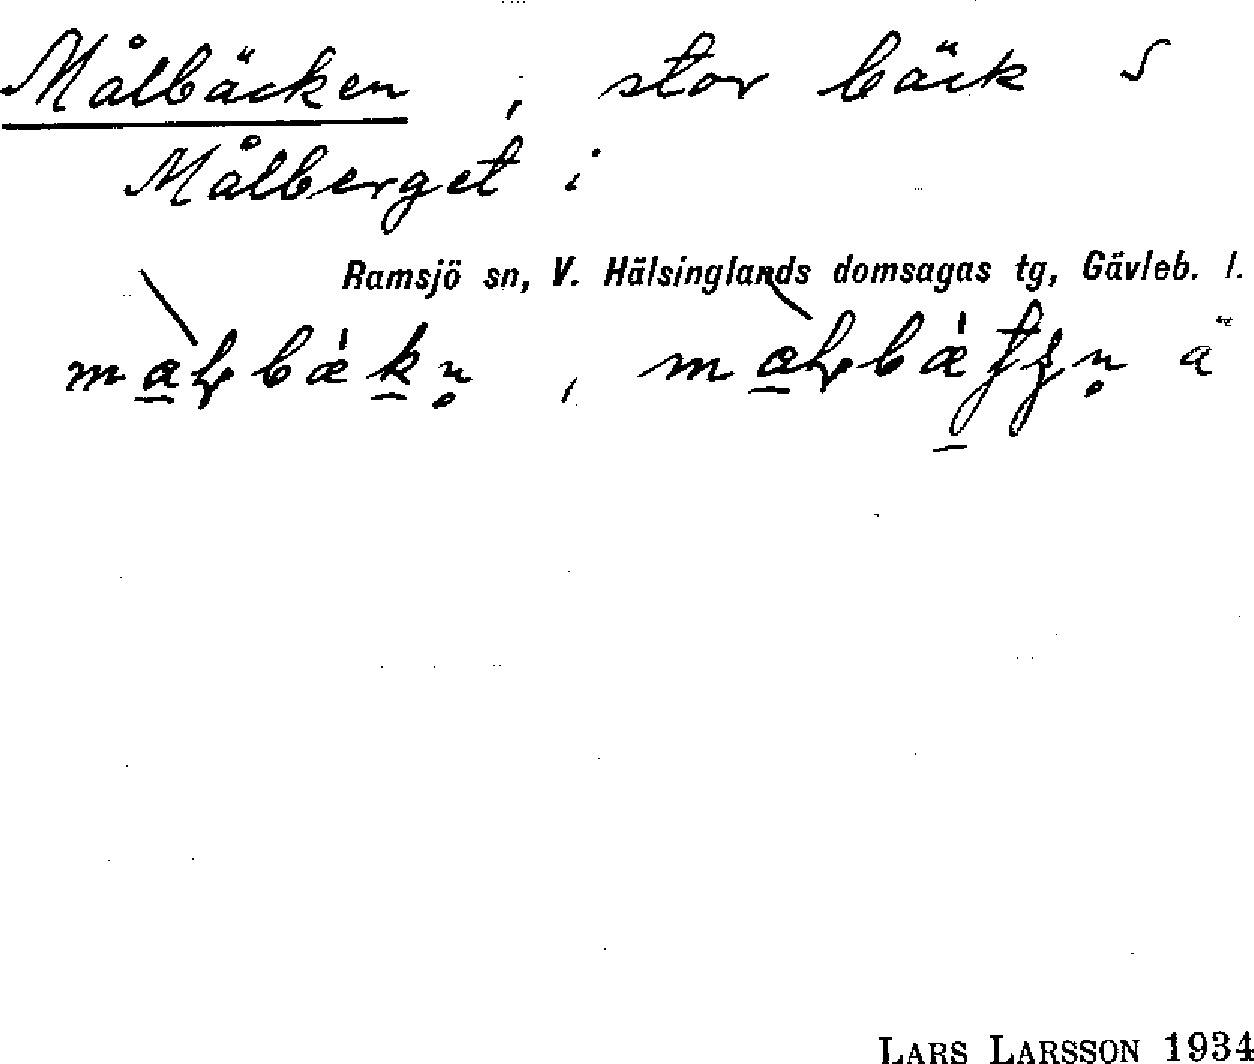 Målbäcken, stor bäck S
Målberget i
Ramsjö sn, V. Hälsinglands domsagas tg, Gävleb. l.
LARS LARSSON 1934